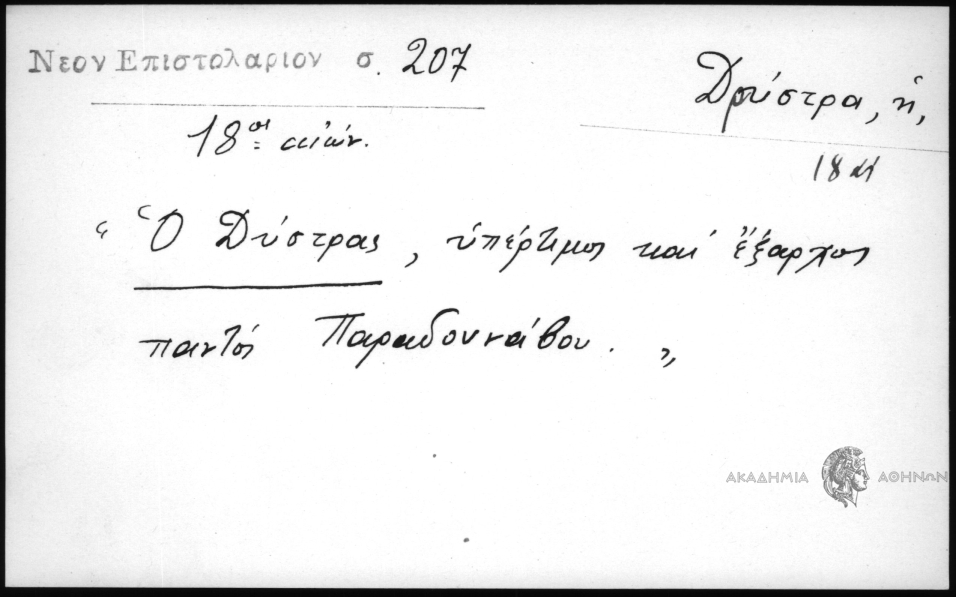 Νεον Επιστολαριον σ. 207
Δρύστρα, ἡ,
18ος αἰών.
18 αἰ
“ Ὁ Δύστρας, ὑπέρτιμος καὶ ἔξαρχος
παντὸς Παραδουνάβου. „
ΑΚΑΔΗΜΙΑ ΑΘΗΝΩΝ